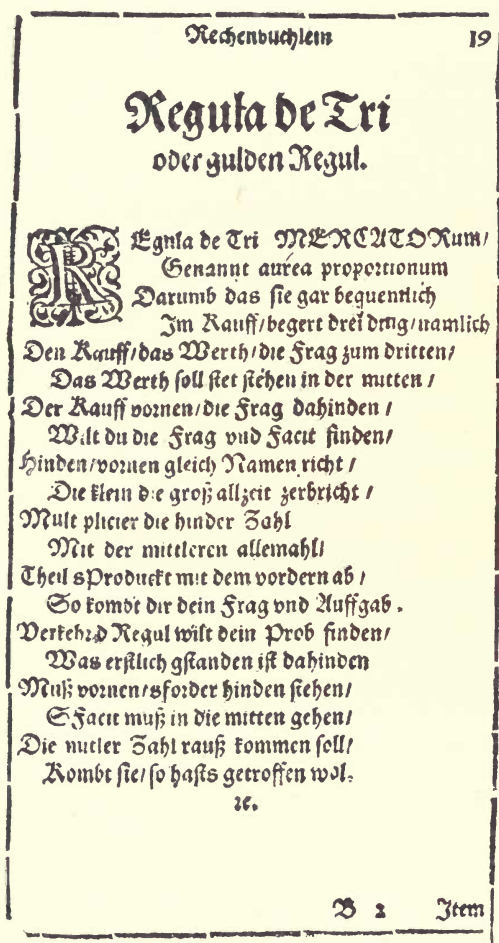 Rechenbuchlein 19
Regula de Tri
oder gulden Regul.
REgula de Tri MERCATORum/
Genannt aurea proportionum
Darumb das sie gar bequentlich
Im Kauff/begert drei ding/namlich
Den Kauff/das Werth/die Frag zum dritten/
Das Werth soll stet stehen in der mitten /
Der Kauff vornen/die Frag dahinden /
Wilt du die Frag vnd Facit finden/
Hinden/vornen gleich Namen richt /
Die klein die groß allzeit zerbricht /
Mult plicier die hinder Zahl
Mit der mittleren allemahl/
Theil sProduckt mit dem vordern ab /
So kombt dir dein Frag vnd Auffgab.
Verkehr d Regul wilt dein Prob finden/
Was erstlich gstanden ist dahinden
Muß vornen/sforder hinden stehen/
SFacit muß in die mitten gehen/
Die mitler Zahl rauß kommen soll/
Kombt sie/so hasts getroffen wol.
ꝛc.
B 2 Item